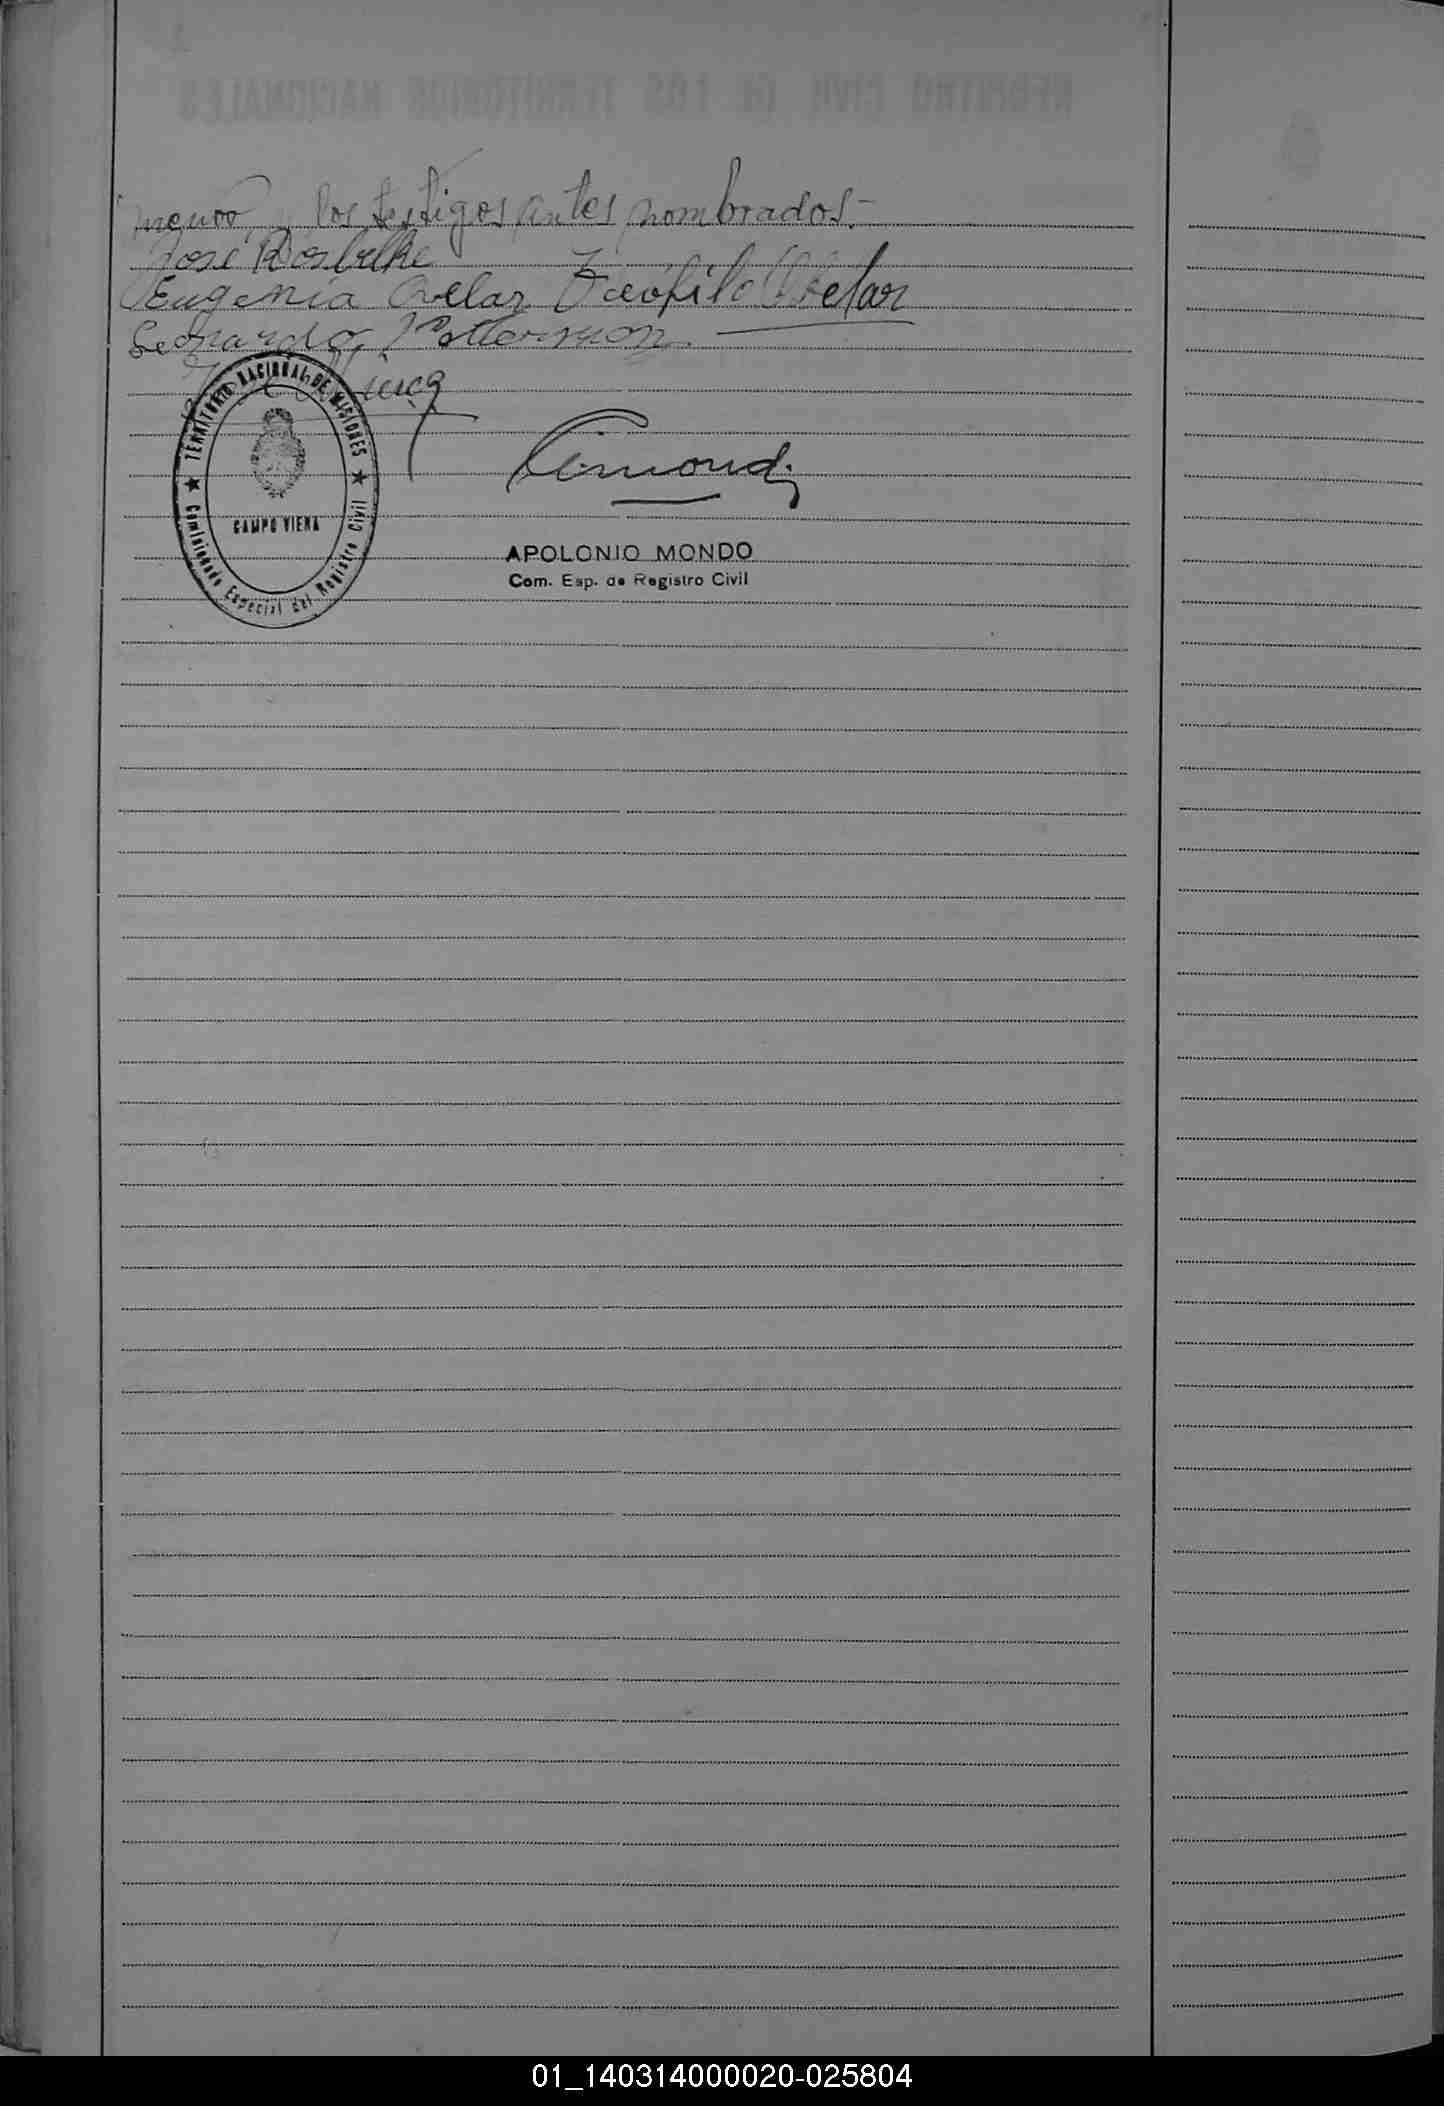 REGISTRO CIVIL DE LOS TERRITORIOS NACIONALES
los testigos antes nombrados.-
José
Eugenia Avelar Teófilo Avelar
Leonardo
TERRITORIO NACIONAL DE MISIONES
CAMPO VIERA
Comisionado Especial del Registro Civil
APOLONIO MONDO
Com. Esp. de Registro Civil
01_140314000020-025804